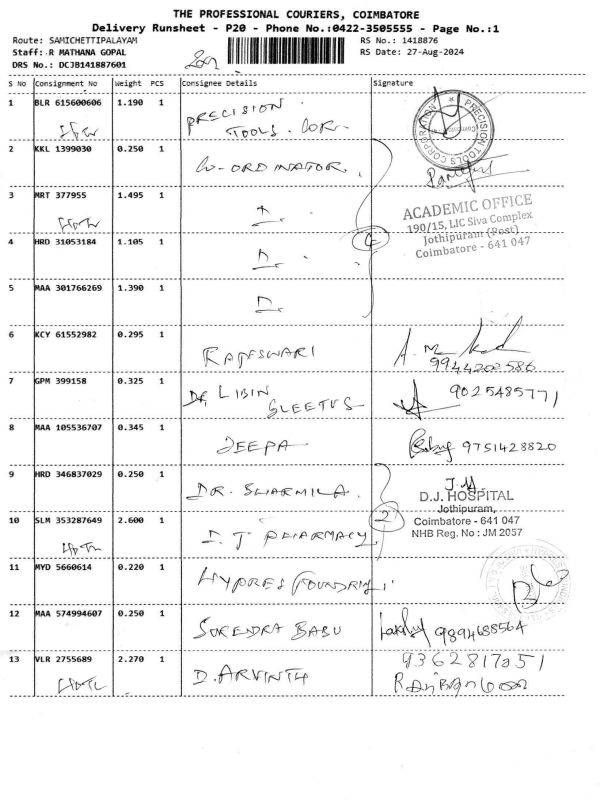 THE PROFESSIONAL COURIERS, COIMBATORE
Delivery Runsheet - P20 - Phone No.:0422-3505555 - Page No.:1
Route: SAMICHETTIPALAYAM RS No.: 1418876
Staff: R MATHANA GOPAL RS Date: 27-Aug-2024
DRS No.: DCJB141887601
S No Consignment No Weight PCS Consignee Details Signature
1 BLR 615600606 1.190 1 PRECISION
TOOLS. COR.
PRECISION TOOLS CORPORATION
2 KKL 1399030 0.250 1 CO-ORDINATOR.
3 MRT 377955 1.495 1
ACADEMIC OFFICE
190/15, LIC Siva Complex
Jothipuram (Post)
Coimbatore - 641 047
4 HRD 31053184 1.105 1
5 MAA 301766269 1.390 1
6 KCY 61552982 0.295 1 RAJESWARI
9944202586
7 GPM 399158 0.325 1 Dr, LIBIN
SLEETUS
9025485771
8 MAA 105536707 0.345 1 DEEPA 9751428820
9 HRD 346837029 0.250 1 DR. SHARMILA.
D.J. HOSPITAL
Jothipuram,
Coimbatore - 641 047
NHB Reg. No : JM 2057
10 SLM 353287649 2.600 1 D. J PHARMACY
2
11 MYD 5660614 0.220 1 HYPRES FOUNDRIES
12 MAA 574994607 0.250 1 SURENDRA BABU 9894688564
13 VLR 2755689 2.270 1 D. ARVINTH
9362817051